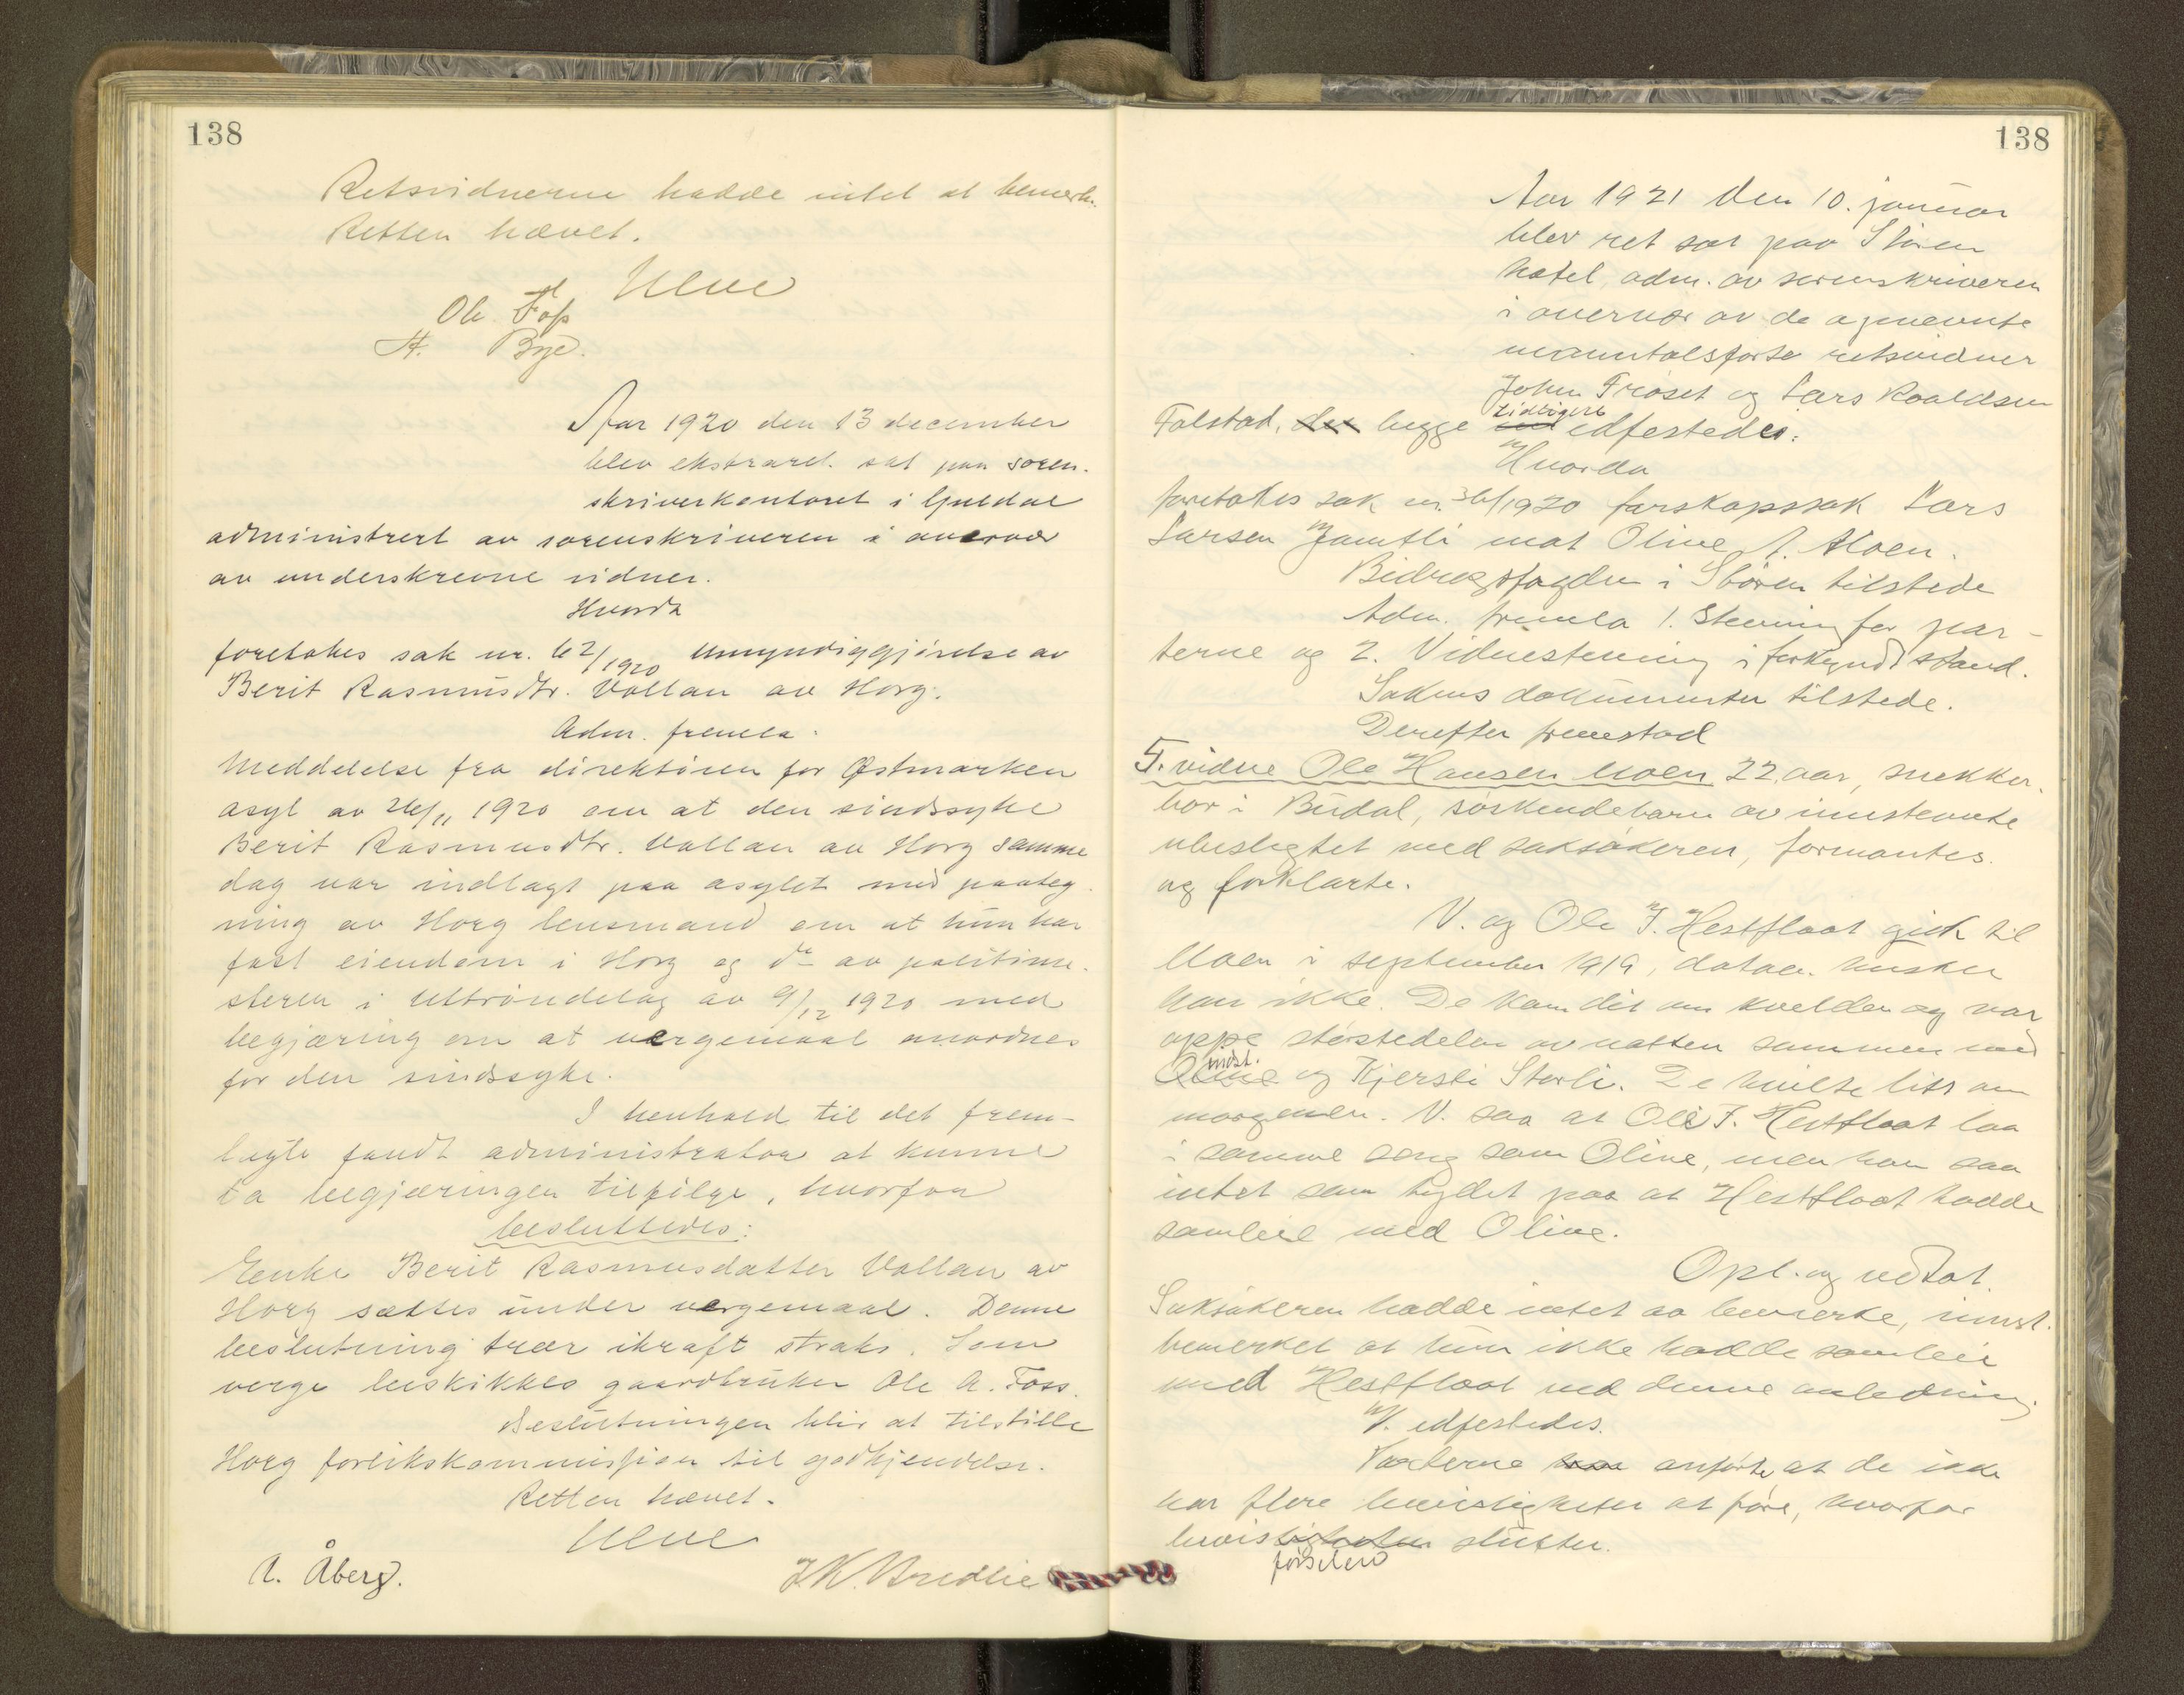 138
Retsvidnerne hadde intet at bemerke.
Retten hævet.
Ole Foss
H. Bye.
Aar 1920 den 13 december
blev ekstraret sat paa soren-
skriverkontoret i Guldal
administrert av sorenskriveren i overvær
av underskrevne vidner.
Hvorda
foretokes sak nr. 62/1920 Umyndiggjørelse av
Berit Rasmusdtr. Vollan av Horg.
Adm. fremla.
Meddelelse fra direktøren for Østmarken
asyl av 26/11 1920 om at den sindssyke
Berit Rasmusdtr. Vollan av Horg samme
dag var indlagt paa asylet med paateg-
ning av Horg lensmand om at hun har
fast eiendom i Horg og do av politime-
steren i Uttrøndelag av 9/12 1920 med
begjæring om at vergemaal anordnes
for den sindssyke.
I henhold til det frem-
lagte fandt administrator at kunne
ta begjæringen tilfølge, hvorfor
besluttedes:
Enke Berit Rasmusdatter Vollan av
Horg sættes under vergemaal. Denne
beslutning trær ikraft straks. Som
verge beskikkes gaardbruker Ole A. Foss.
Beslutningen blir at tilstille
Horg forlikskommission til godkjendelse.
Retten hævet.
A. Åberg. J.K. Bredlie
138
Aar 1921 den 10. januar
blev ret sat paa Støren
hotel, adm. av sorenskriveren
i overvær av de opnevnte
manntalsførte retsvidner
John Frøset og Lars Roaldsen
Folstad, den begge tidligere edfestedes:
Hvorda
foretokes sak nr. 36/1920 farskapssak Lars
Larsen Jamtli mot Oline J. Moen.
Bidragsfogden i Støren tilstede
Adm. fremla 1. Stevning for par-
terne og 2. Vidnestevning i forkyndt stand.
Sakens dokumenter tilstede.
Derefter fremstod
5. vidne Ole Hansen Moen 22 aar, snekker,
bor i Budal, søskendebarn av innstevnte
ubeslegtet med saksøkeren, formantes
og forklarte.
V. og Ole J. Hestflaat gick til
Moen i september 1919, datoen husker
han ikke. De kom dit om kvelden og var
oppe størstedelen av natten sammen med
Oline indst. og Kjersti Storli. De hvilte litt om
morgenen. V. saa at Ole J. Hestflaat laa
i samme seng som Oline, men han saa
intet som tydet paa at Hestflaat hadde
samleie med Oline.
Opl. og vedtat.
Saksøkeren hadde intet aa bemerke, innst.
bemerket at hun ikke hadde samleie
med Hestflaat ved denne anledning.
V. edfestedes.
Parterne anførte at de ikke
har flere bevisligheter at føre, hvorfor
bevisligheten slutter.
førselen